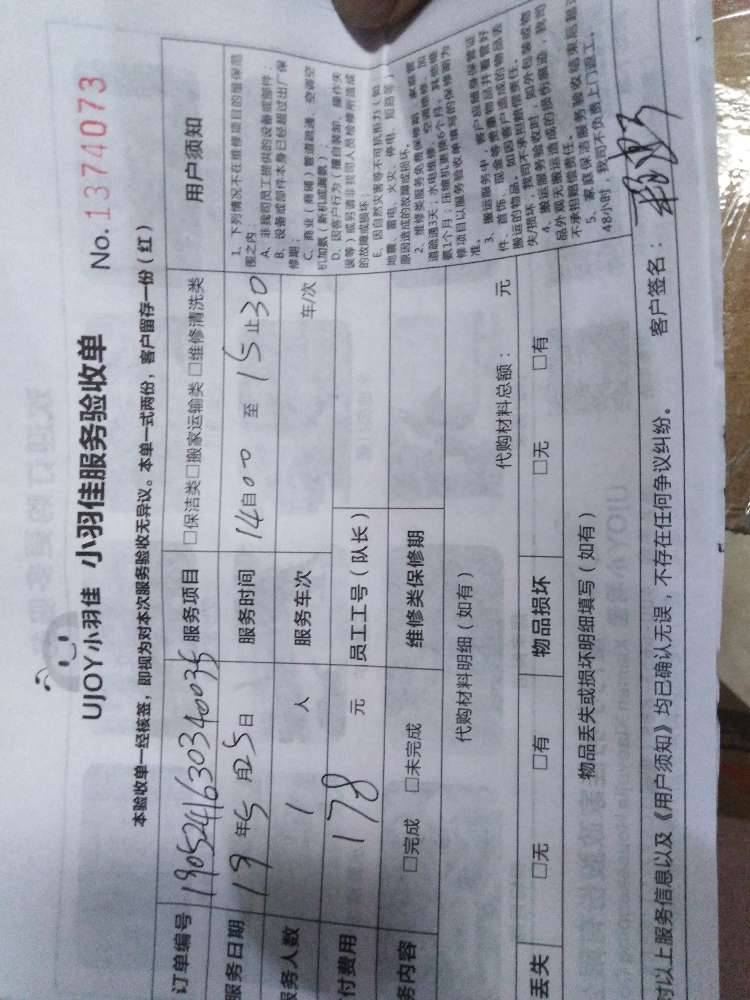 UJOY小羽佳 小羽佳服务验收单
No.1374073
本验收单一经核签，即视为对本次服务验收无异议。本单一式两份，客户留存一份（红）
订单编号 1905241630340035 服务项目 □保洁类□搬家运输类 □维修清洗类
服务日期 19年5月25日 服务时间 14自00 至 15止30
服务人数 1 人 服务车次 车/次
付费用 178 元 员工工号（队长）
务内容 □完成 □未完成 维修类保修期
代购材料明细（如有） 代购材料总额： 元
丢失 □无 □有 物品损坏 □无 □有
物品丢失或损坏明细填写（如有）
对以上服务信息以及《用户须知》均已确认无误，不存在任何争议纠纷。 客户签名：
用户须知
1、下列情况不在维修项目的维保范
围之内
A、非我司员工提供的设备或部件；
B、设备或部件本身已经超过出厂保
修期；
C、商业（商铺）管道疏通、空调空
机加氨（新机或漏氨）；
D、因客户行为（擅自装卸、操作失
误等）或另请非我司人员检修所造成
的故障或损坏；
E、因自然灾害等不可抗拒力（如
地震、雷电、火灾、停电、短路等）
原因造成的故障或损坏。
2、维修类服务免费保修期：家庭管
道疏通3天、水电维修、空调维修、加
氨1个月；压缩机更换6个月。其他维
修项目以服务验收单填写的保修期为
准。
3、搬运服务中，客户应随身保管证
件、首饰、现金等贵重物品并看管好
搬运的物品。如因客户造成的物品丢
失/损坏，我司不承担赔偿责任。
4、搬运服务验收时，如外包装或物
品外观无搬运造成的损伤痕迹，我司
不承担赔偿责任。
5、家庭保洁服务验收结束后超过
48小时，我司不负责上门返工。